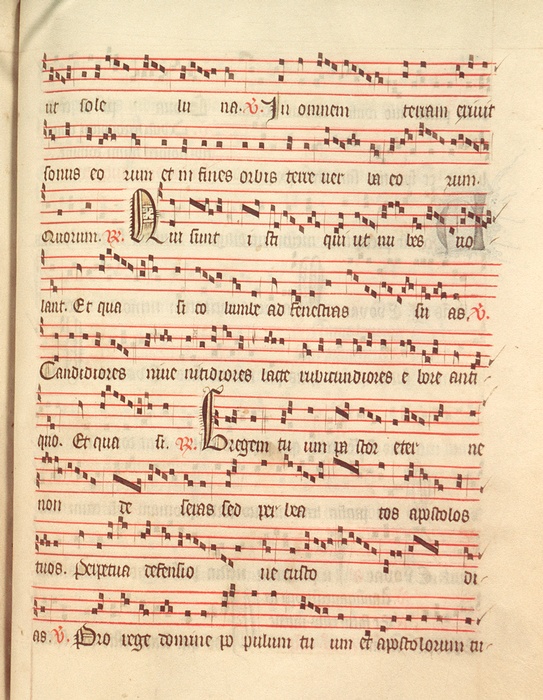 ut sole lu na. V. In omnem terram exivit
sonus eo rum et in fines orbis terre ver ba eo rum.
Quorum. R. Qui sunt i sti qui ut nu bes vo
lant. Et qua si co lumbe ad fenestras su as. V.
Candidiores nive nitidiores lacte rubicundiores e bore anti
quo. Et qua si. R. Gregem tu um pa stor eter ne
non de seras sed per bea tos apostolos
tuos. Perpetua defensio ne custo di
as. V. Pro tege domine po pulum tu um et apostolorum tu